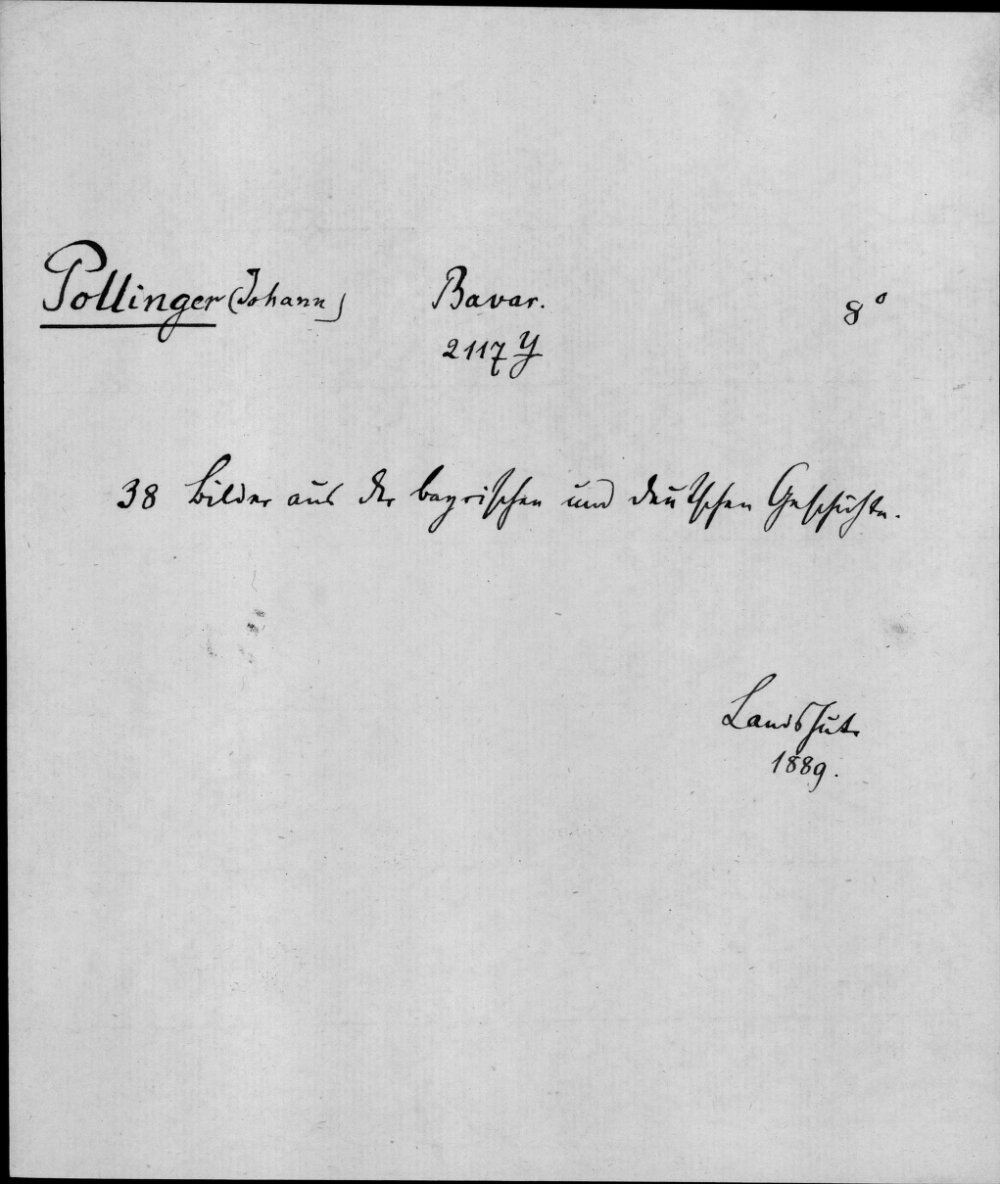 Pollinger (Johann) Bavar. 8°
2117 y
38 Bilder aus der bayrischen und deutschen Geschichte.
Landshut.
1889.